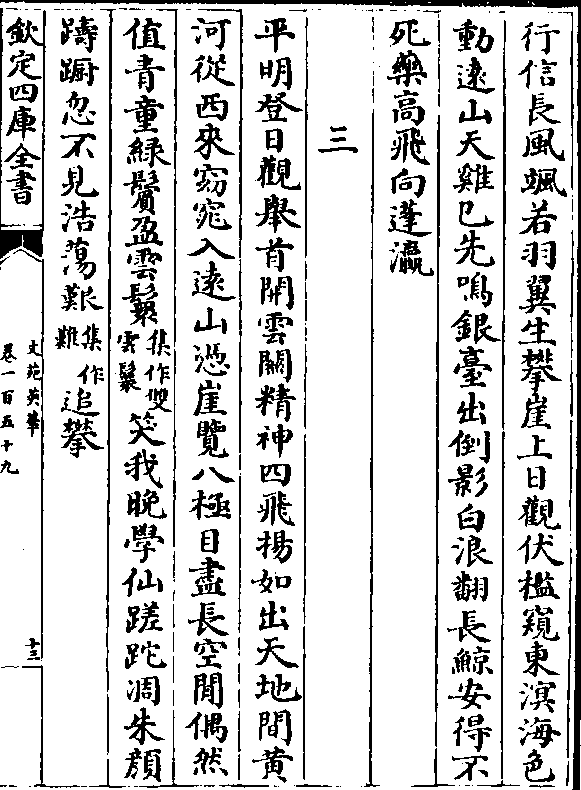 行信長風颯若羽翼生攀崖上日觀伏檻窺東溟海色
動遠山天雞已先鳴銀臺出倒影白浪翻長鯨安得不
死藥高飛向蓬瀛
三
平明登日觀舉首開雲關精神四飛揚如出天地間黄
河從西來窈窕入遠山憑崖覽八極目盡長空閒偶然
值青童綠鬢盈雲鬟集作雙雲鬟笑我晚學仙蹉跎凋朱顔
躊躕忽不見浩蕩艱集作難追攀
欽定四庫全書
文苑英華
卷一百五十九
十三